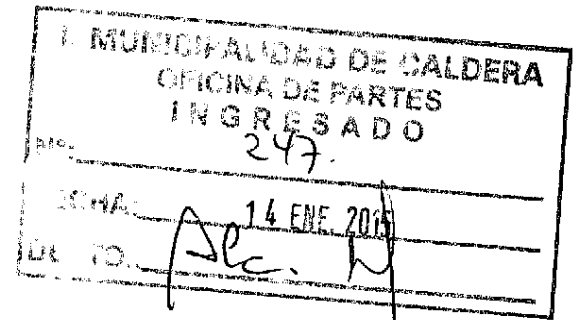 I. MUNICIPALIDAD DE CALDERA
OFICINA DE PARTES
INGRESADO
Nº: 247.
FECHA: 14 ENE. 201
DEPTO.: Alc.